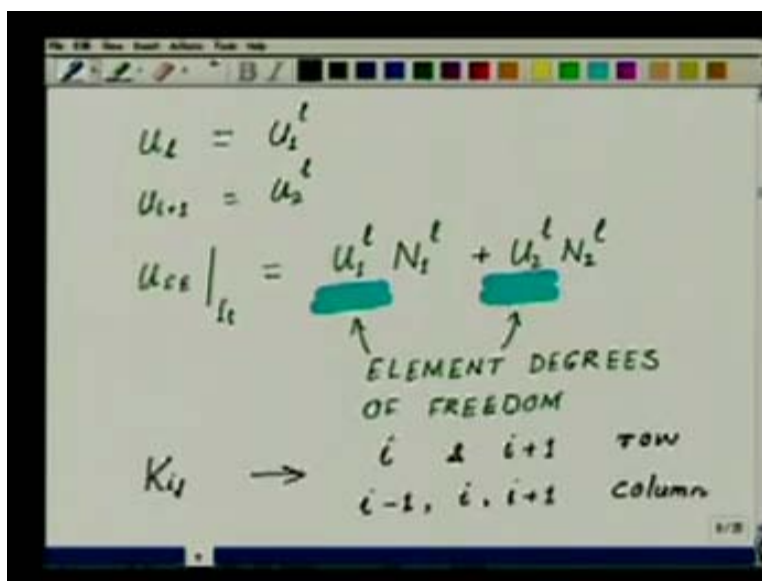 File Edit View Insert Actions Tools Help
B I
u_l = u_1^l
u_{l+1} = u_2^l
u_{FE} |_{I_l} = u_1^l N_1^l + u_2^l N_2^l
ELEMENT DEGREES
OF FREEDOM
K_{ij} → i & i+1 row
i-1, i, i+1 column